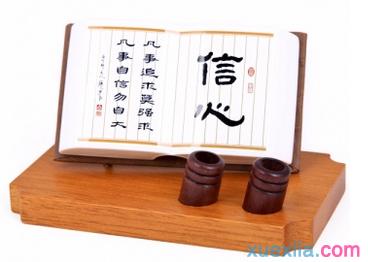 信心
凡事追求莫强求
凡事自信勿自大
xuexila.com